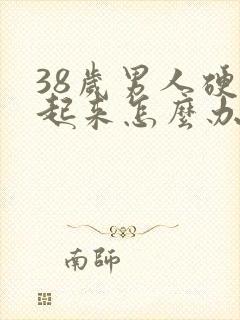 38歲男人硬
起來怎麼办
南師